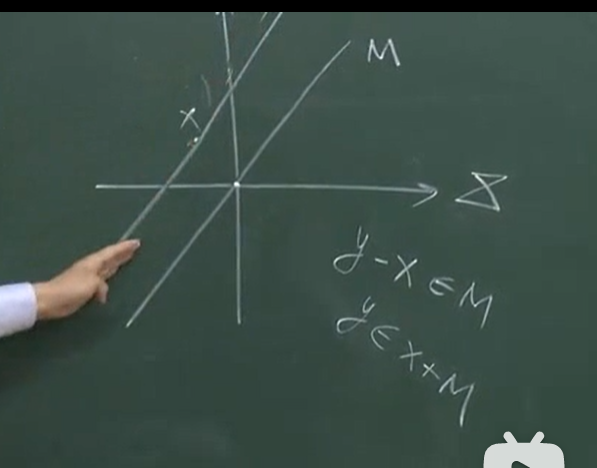 M
x
X
y-x∈M
y∈x+M